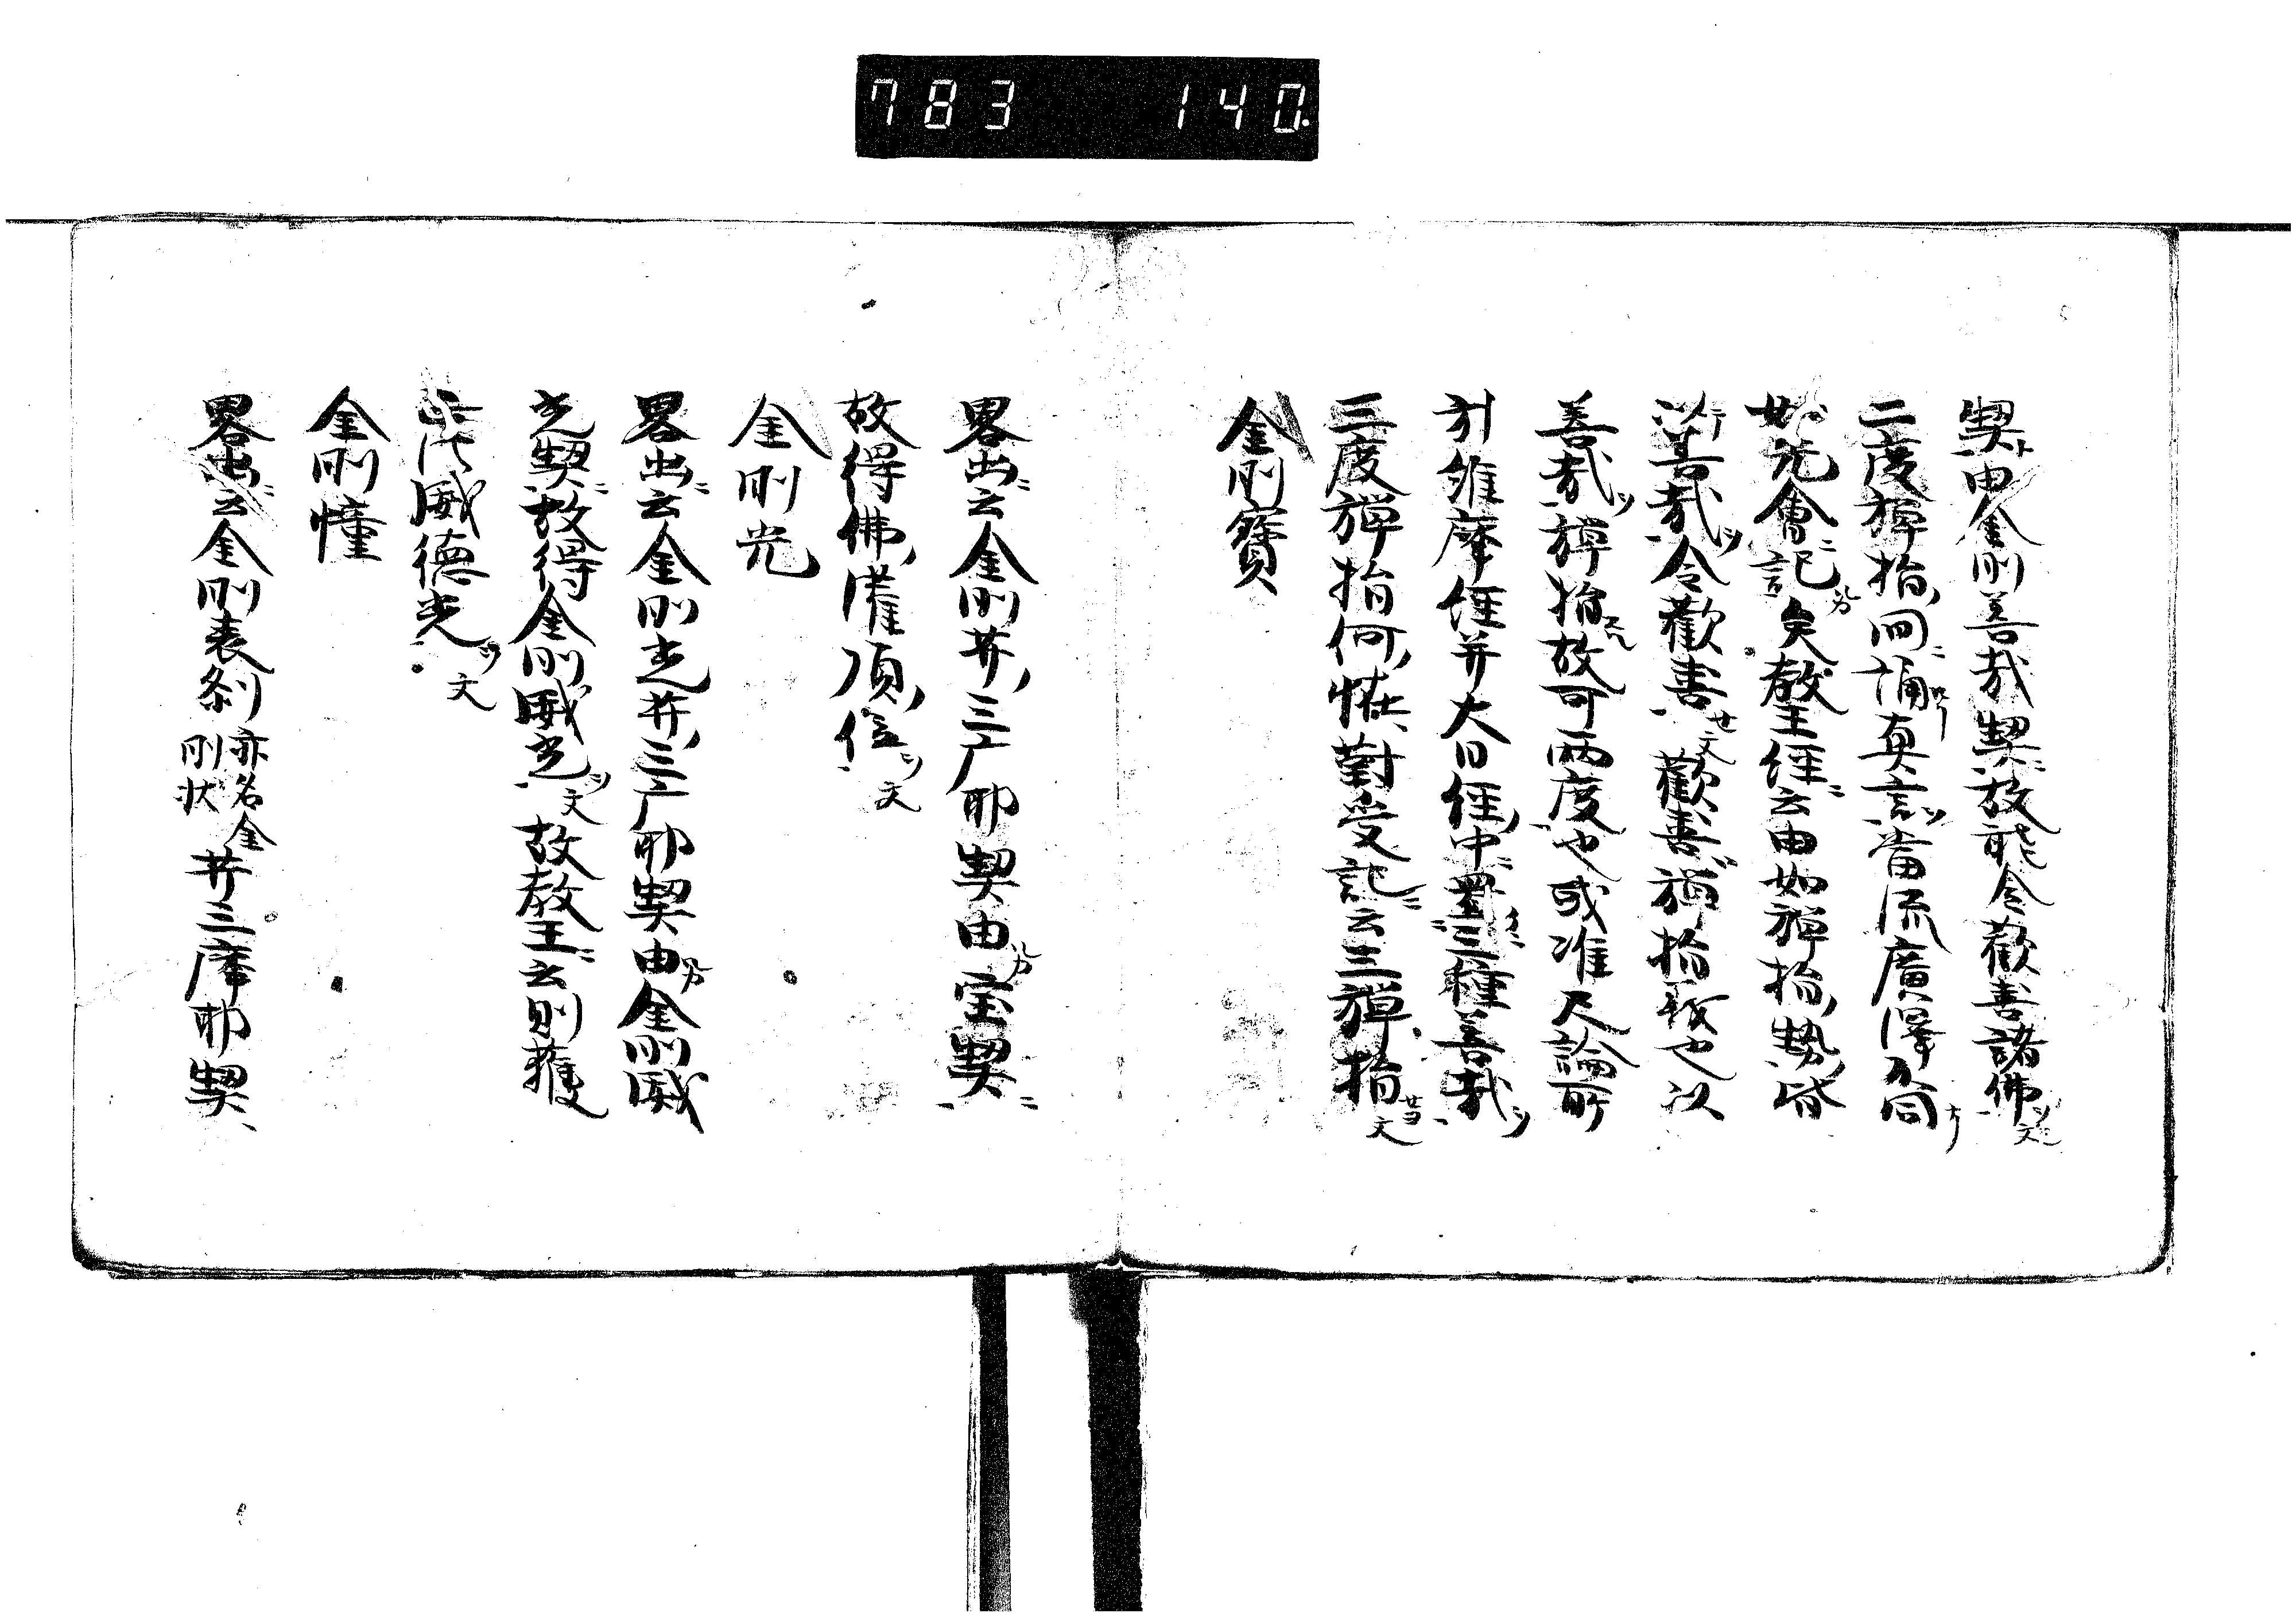 783 140.
契由金剛善哉契故能令歡喜諸佛ツ文
二度彈指間ニ誦真言ツ當流廣澤共同
如先會ニ記矣教王經ニ云由如彈指勢皆
以善哉ツ令歡喜セ文歡喜ハ彈指義也以
善哉ツ彈指故可兩度也或准尺論所
引維摩經并大日經中ニ三種善哉ツ
三度彈指何恠對受記ニ云三彈指文
金剛寶
畧出ニ云金剛并三广耶契由宝契ニ
故得佛灌頂位ツ文
金剛光
畧出ニ云金剛光并三广耶契由金剛威
光契ニ故得金剛威光ツ文故教王ニ云則獲
威德光ツ文
金剛幢
畧出ニ云金剛表刹亦名金剛状并三摩耶契